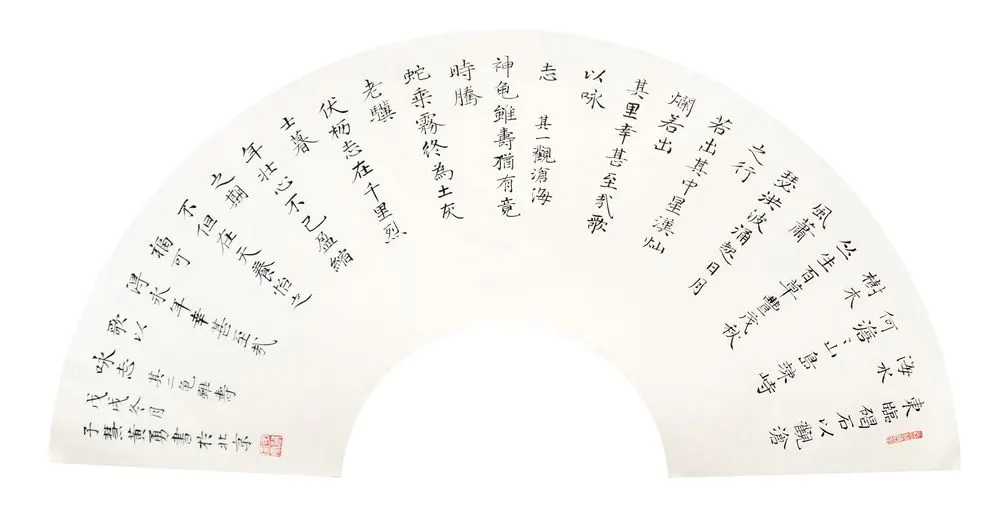 東臨碣石以觀滄
海水
何澹〻山島竦峙
樹木
丛生百草豐茂秋
風蕭
瑟洪波涌起日月
之行
若出其中星漢灿
爛若出
其里幸甚至哉歌
以咏
志 其一觀滄海
神龟雖壽猶有竟
時騰
蛇乘霧終為土灰
老驥
伏枥志在千里烈
士暮
年壮心不已盈縮
之期
不但在天養怡之
福可
得永年幸甚至哉
歌以
咏志 其二龟雖壽
戊戌冬月
子慧黄勇書於北京